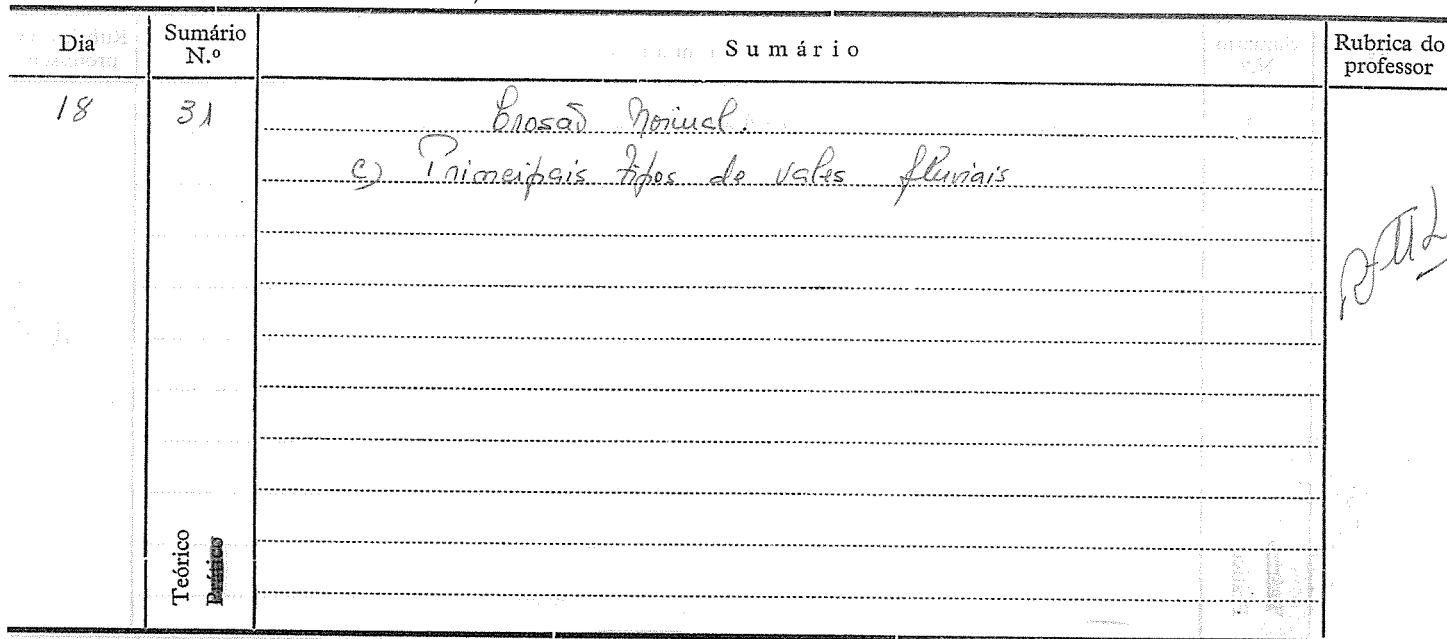 Dia Sumário N.º Sumário Rubrica do professor
18 31 Erosão Normal.
c) Principais tipos de vales fluviais
Teórico
Prático